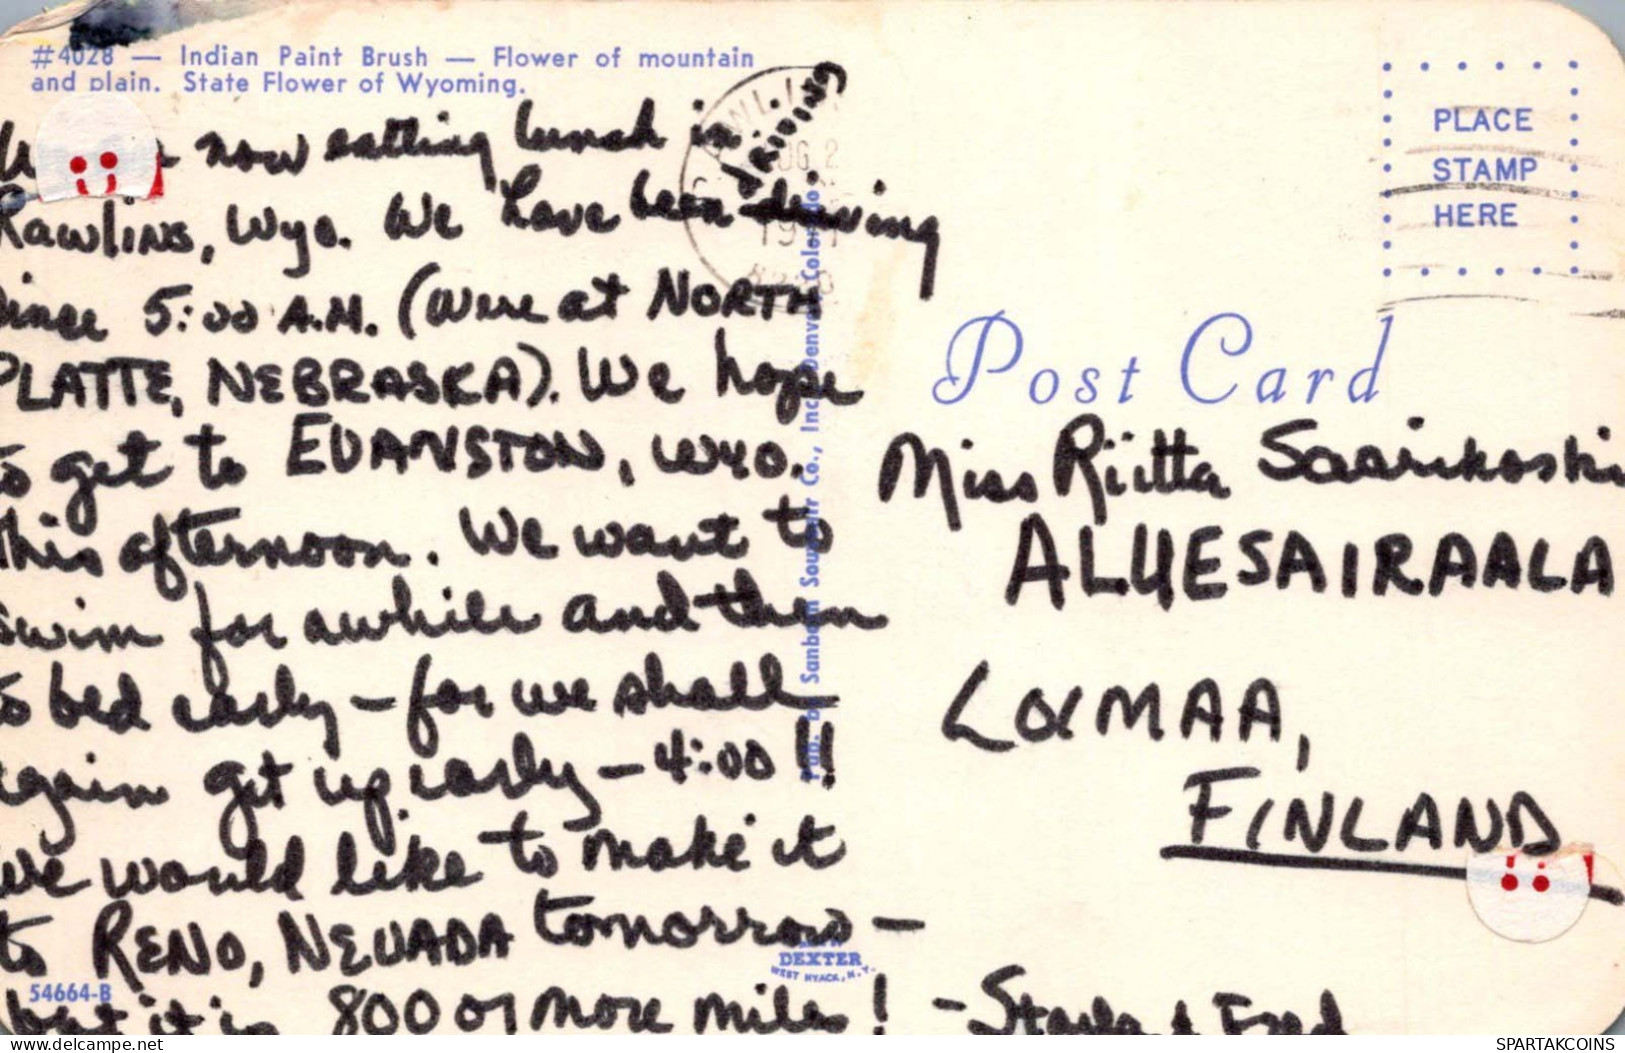 #4028 — Indian Paint Brush — Flower of mountain
and plain. State Flower of Wyoming.
now eatting lunch in
Rawlins, Wyo. We have been driving
DRIVING
since 5:00 A.M. (Were at NORTH
PLATTE, NEBRASKA). We hope
to get to EVANSTON, WYO.
this afternoon. We want to
swim for awhile and then
to bed early – for we shall
again get up early – 4:00!!
We would like to make it
to RENO, NEVADA tomorrow –
but it is 800 or more miles! – Starla & Fred
54664-B
Pub. by Sanborn Souvenir Co., Inc., Denver, Colorado
DEXTER
WEST NYACK, N.Y.
PLACE
STAMP
HERE
Post Card
Miss Riitta Saarikoski
ALUESAIRAALA
LOIMAA,
FINLAND
SPARTAKCOINS
https://www.delcampe.net